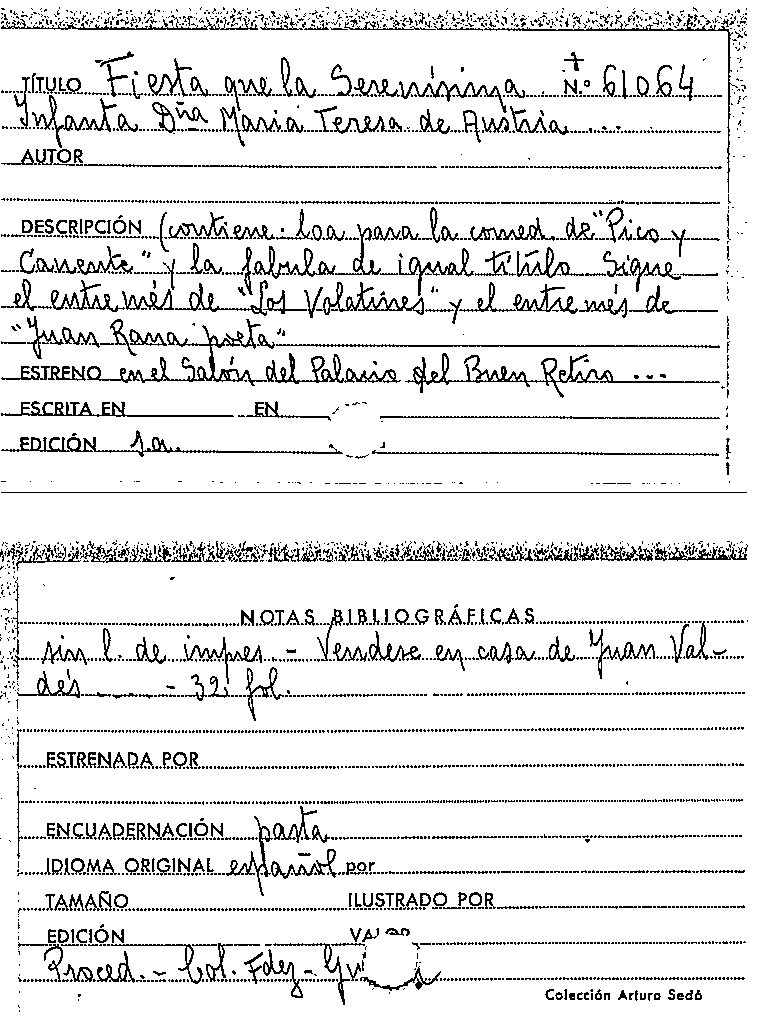 TÍTULO Fiesta que la Serenísima N.º 61064
Infanta Dña Maria Teresa de Austria ...
AUTOR
DESCRIPCIÓN (contiene. loa para la comed. de "Pico y
Canente" y la fabula de igual título Sigue
el entremés de "Los Volatines" y el entremés de
"Juan Rana poeta"
ESTRENO en el Salón del Palacio del Buen Retiro ...
ESCRITA EN EN
EDICIÓN s.a.
NOTAS BIBLIOGRÁFICAS
sin l. de impres. - Vendese en casa de Juan Val-
dés ..... - 32 fol.
ESTRENADA POR
ENCUADERNACIÓN pasta
IDIOMA ORIGINAL español por
TAMAÑO ILUSTRADO POR
EDICIÓN
Proced. - Col. Fdez -
Colección Arturo Sedó